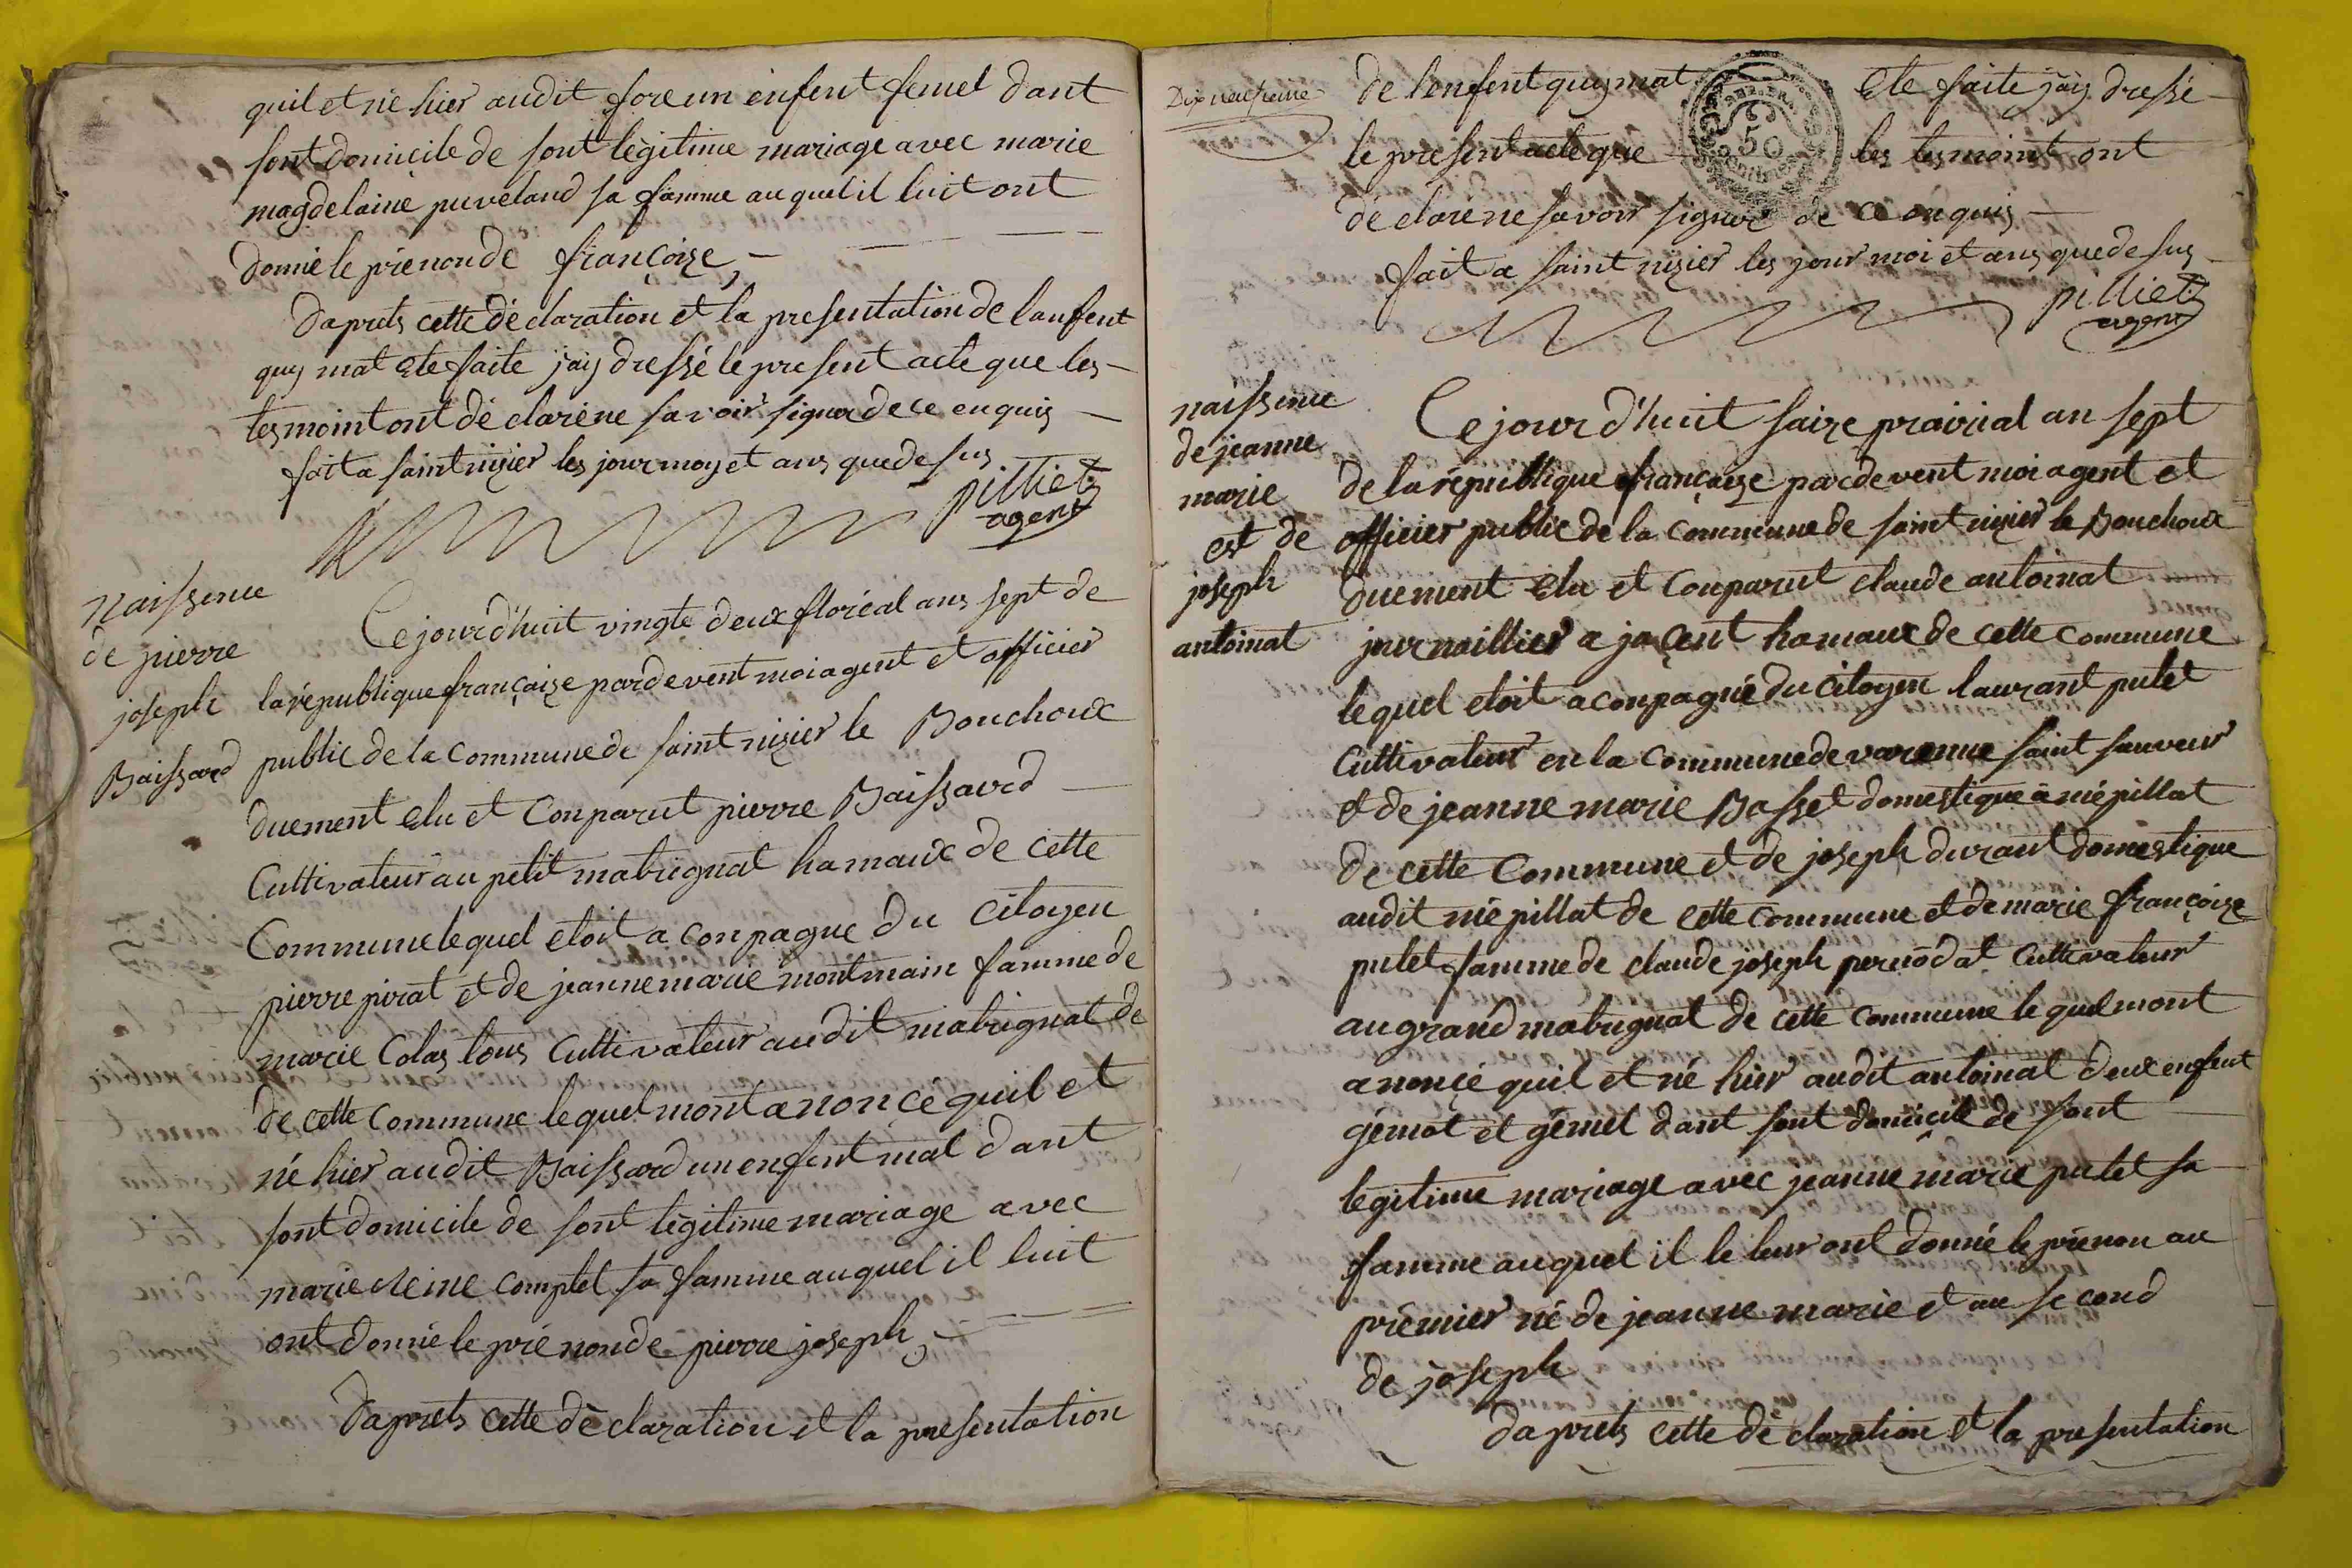 quil et né hier audit fore un enfent femel dant
sont domicile de sont légitime mariage avec marie
magdelaine puveland sa famme au quel il luit ont
donné le prénon de françoize
Daprets cette déclaration et la presentation de lanfent
quy mat ete faite jay dressé le present acte que les
tesmoint ont déclaréne savoir signer de ce enquis
fait a saint nizier les jour moy et ans que de sus
pilliet
agent
Naissence
de pierre
joseph
Baissard
Ce jourd'huit vingte deux floréal ans sept de
la république françaize pardevent moi agent et officier
public de la commune de saint nizier le Bouchoux
duement elu et Conparut pierre Baissard
Cultivateur au petit matrignat hamaux de cette
Commune lequel etoit a conpagne du citoyen
pierre pirat et de jeanne marie montmain famme de
marie Colas tous Cultivateur audit matrignat de
de cette commune le quel mont anoncé quil et
né hier audit Baissard un enfent mal dant
sont domicile de sont légitime mariage avec
marie Reine complet sa famme auquel il luit
ont donné le prénon de pierre joseph
Daprets cette déclaration et la presentation
Dix neufieme
de lenfent quy mat ete faite jay dressé
le present acte que les tesmoint ont
déclaréne savoir signer de ce enquis
fait a saint nizier les jour moi et ans que de sus
pilliet
agent
50
naissence
de jeanne
marie
est de
joseph
antoinat
Ce jourd'huit saize prairial an sept
de la république françaize pardevent moi agent et
officier public de la commune de saint nizier le Bouchoux
duement elu et Conparut claude antoinat
journaillier a jacent hamaux de cette commune
lequel etoit aconpagné du citoyen laurant putet
Cultivateur en la commune de varenne saint sauveur
et de jeanne marie Basset domestique a niépillat
de cette Commune et de joseph durant domestique
audit niépillat de cette commune et de marie françoize
putet famme de claude joseph periodat Cultivateur
au grand matrignat de cette commune le quel mont
anonçé quil et né hier audit antoinat deux enfent
gémot et gémel dant sont domicile de sont
légitime mariage avec jeanne marie putet sa
famme auquel il le leur ont donné le prénon au
prémier né de jeanne marie et au second
de joseph
Daprets cette déclaration et la presentation